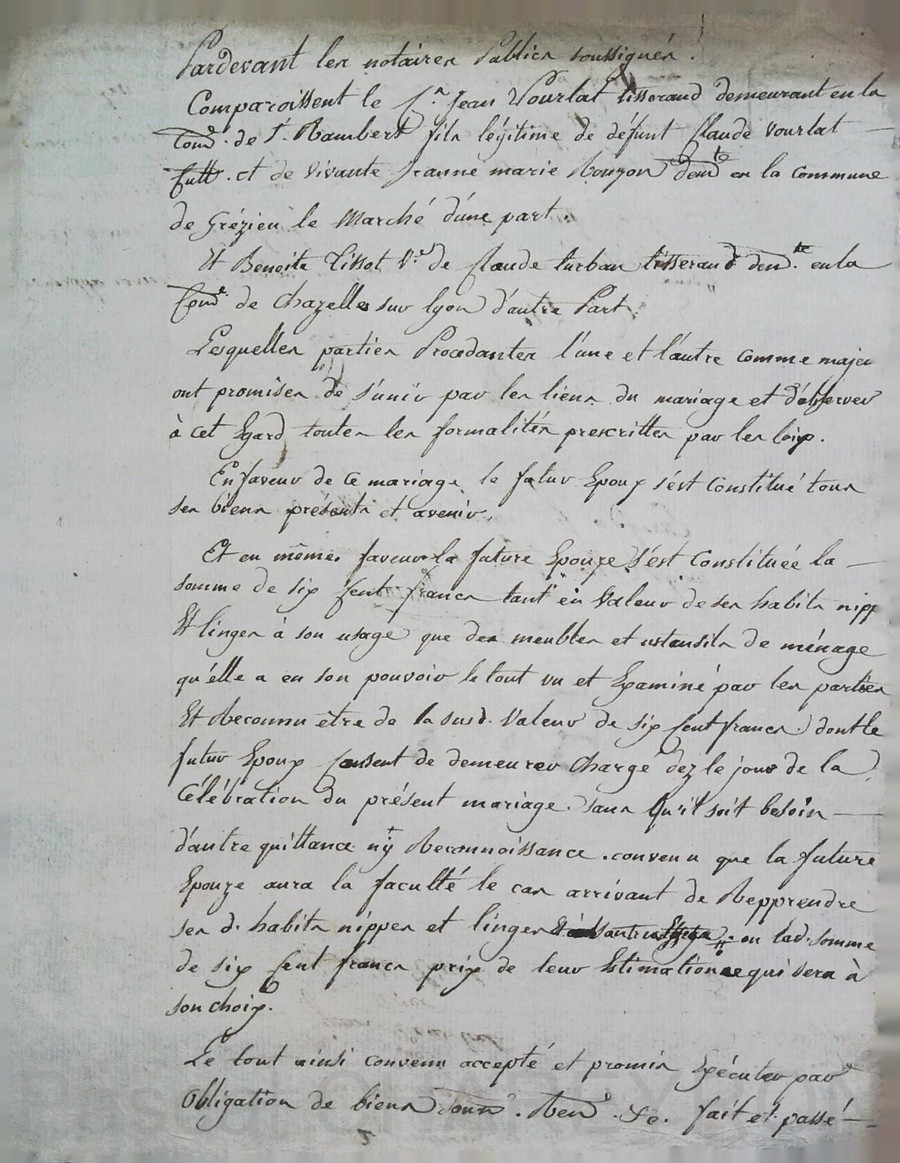 Pardevant les notaires Publics soussignés.
Comparoissent le s.r Jean Vourlat tisserand demeurant en la
Com.e de S.t Rambert fils légitime de défunt Claude Vourlat
cult.r et de vivante Jeanne marie Bonzon dem.te en la commune
de Grézieu le Marché d'une part.
Et Benoite Tissot V.e de Claude turban tisserand dem.te en la
Com.e de Chazelles sur lyon d'autre Part.
Lesquelles parties Procedantes l'une et l'autre comme majeu
ont promises de s'unir par les liens du mariage et d'observer
à cet Egard toutes les formalités prescrittes par les loix.
En faveur de ce mariage le futur Epoux s'est Constitué tous
ses biens présents et avenir.
Et en même faveur la future Epouze s'est Constituée la
somme de six Cent francs tant en Valeur de ses habits nipp
Et linges à son usage que des meubles et ustensils de ménage
qu'élle a en son pouvoir le tout vu et Examiné par les parties
Et Reconnu etre de la susd. Valeur de six Cent francs dont le
futur Epoux Consent de demeurer Chargé dez le jour de la
Célébration du présent mariage. sans qu'il soit besoin
d'autre quittance n'y Reconnoissance. convenu que la future
Epouze aura la faculté le cas arrivant de Repprendre
ses d. habits nippes et linges ou lad. somme
de six Cent francs prix de leur Estimation ce qui sera à
son choix.
Le tout ainsi convenu accepté et promis Exécuter par
Obligation de biens soum.s Ren.s &c. fait et passé